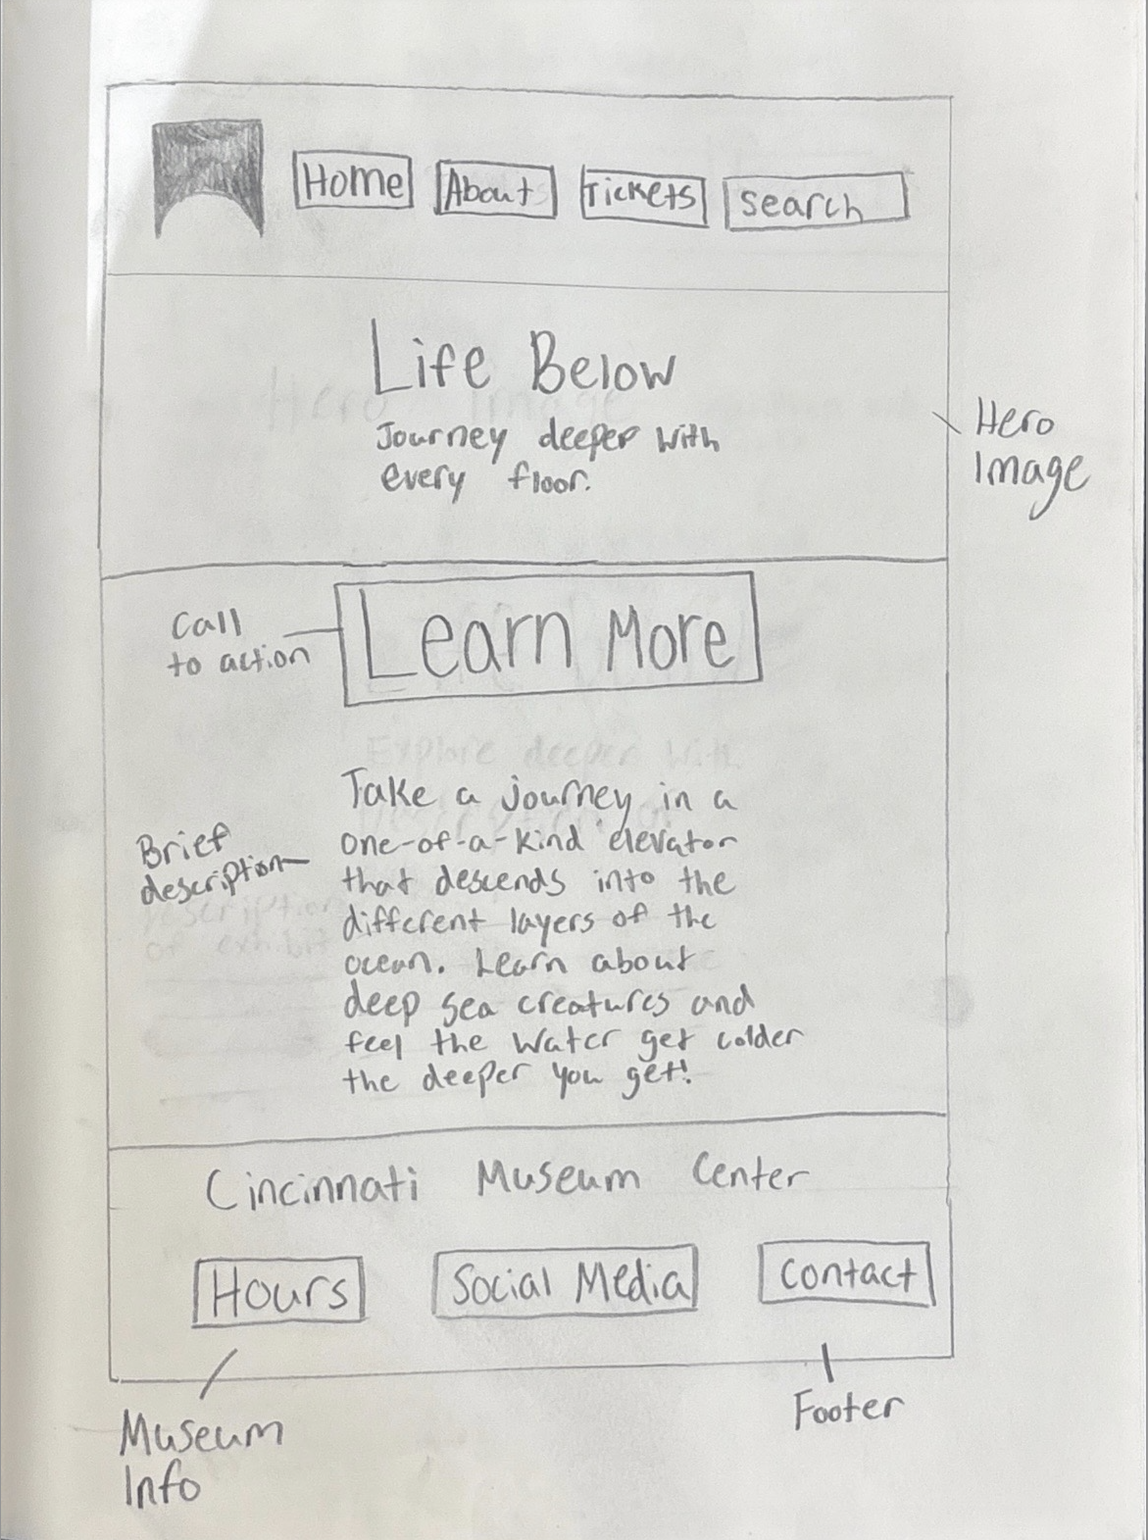 Home About Tickets Search
Life Below
Journey deeper with
every floor.
Hero
Image
Call
to action
Learn More
Explore deeper with
Take a journey in a
one-of-a-kind elevator
that descends into the
different layers of the
ocean. Learn about
deep sea creatures and
feel the water get colder
the deeper you get!
Brief
description
description
of exhibit
Cincinnati Museum Center
Hours Social Media Contact
Museum
Info
Footer
Hero Image